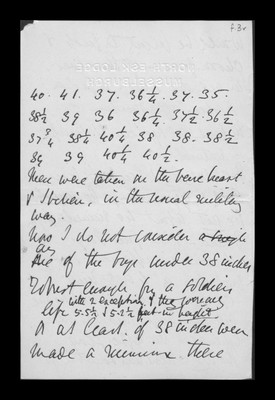 f3r
NORTH ESK LODGE
MUSSELBURGH
40. 41. 37. 36¼. 37. 35.
38½ 39 36 36¼. 37½. 36½
37¾ 38¼ 40¼ 38 38. 38½
39 39 40¼ 40½.
These were taken on the bare breast
& Stichein, in the usual military
way.
Now I do not consider a single
any
one of the boys under 38 inches
robust enough for a soldiers
with 2 exceptions of the journey
life 5.5½ & 5.2½ feet in height.
a at least. of 38 inches were
made a minimum there